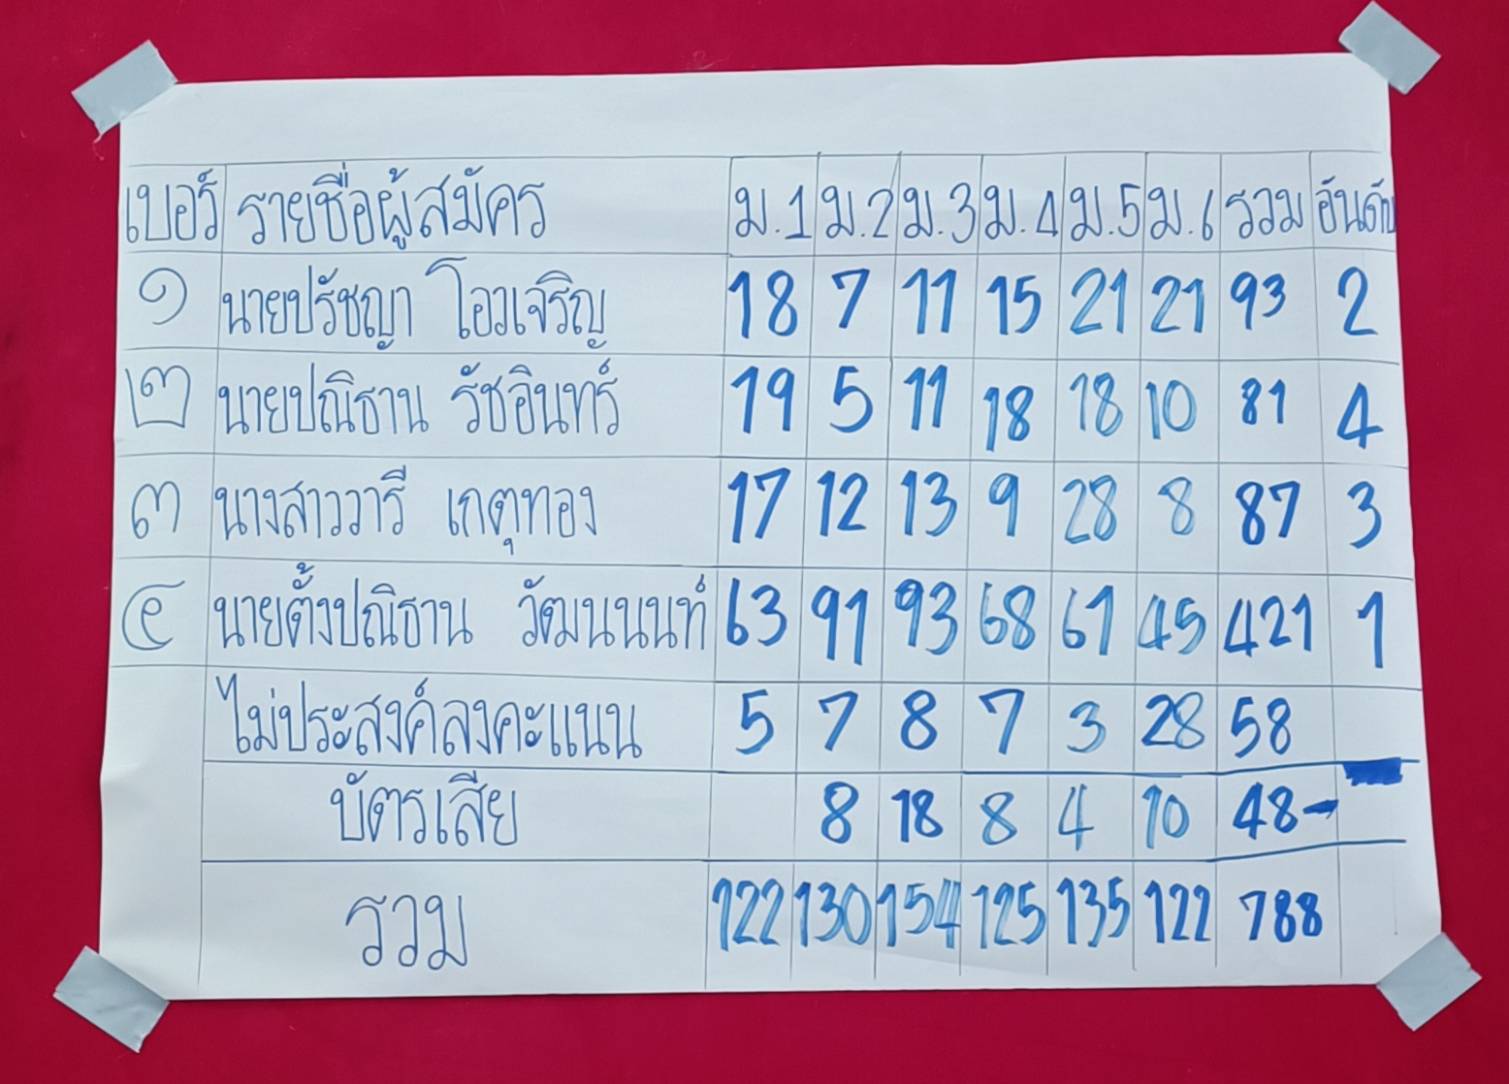 เบอร์ รายชื่อผู้สมัคร ม.1 ม.2 ม.3 ม.4 ม.5 ม.6 รวม อันดับ
๑ นายปรัชญา โอวเจริญ 18 7 11 15 21 21 93 2
๒ นายปณิธาน รัชอินทร์ 19 5 11 18 18 10 81 4
๓ นางสาววารี เกตุทอง 17 12 13 9 28 8 87 3
๔ นายตั้งปณิธาน วัฒนนนท์ 63 91 93 68 61 45 421 1
ไม่ประสงค์ลงคะแนน 5 7 8 7 3 28 58
บัตรเสีย 8 18 8 4 10 48-
รวม 122 130 154 125 135 122 788